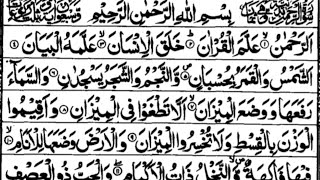 بِسْمِ اللهِ الرَّحْمٰنِ الرَّحِيْمِ
اَلرَّحْمٰنُ ۙ عَلَّمَ الْقُرْاٰنَ ؕ خَلَقَ الْاِنْسَانَ ۙ عَلَّمَهُ الْبَيَانَ
اَلشَّمْسُ وَالْقَمَرُ بِحُسْبَانٍ ۪ وَّالنَّجْمُ وَالشَّجَرُ يَسْجُدٰنِ وَالسَّمَآءَ
رَفَعَهَا وَوَضَعَ الْمِيْزَانَ ۙ اَلَّا تَطْغَوْا فِي الْمِيْزَانِ وَاَقِيْمُوا
الْوَزْنَ بِالْقِسْطِ وَلَا تُخْسِرُوا الْمِيْزَانَ وَالْاَرْضَ وَضَعَهَا لِلْاَنَامِ ۙ
فِيْهَا فَاكِهَةٌ ۪ وَّالنَّخْلُ ذَاتُ الْاَكْمَامِ ۖ وَالْحَبُّ ذُو الْعَصْفِ